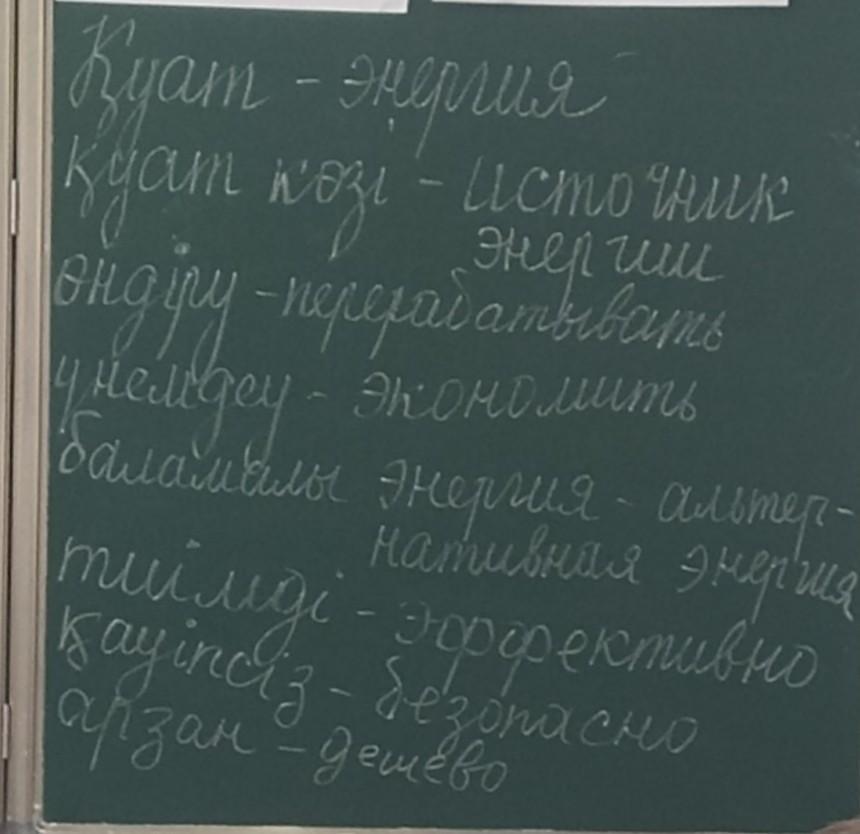 Қуат - энергия
қуат көзі - источник
энергии
өндіру - перерабатывать
үнемдеу - экономить
баламалы энергия - альтер-
нативная энергия
тиімді - эффективно
қауіпсіз - безопасно
арзан - дешево